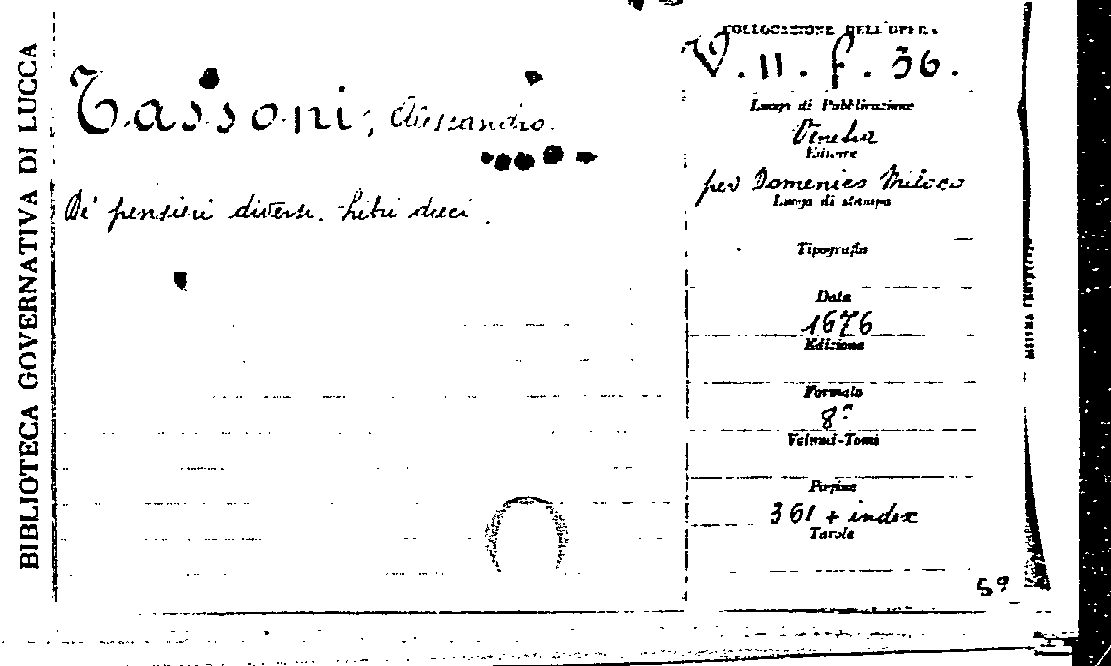 BIBLIOTECA GOVERNATIVA DI LUCCA
Tassoni, Alessandro.
De' pensieri diversi. Libri dieci.
COLLOCAZIONE DELL'OPERA
V. II. f. 36.
Luogo di Pubblicazione
Venetia
Editore
per Domenico Miloco
Luogo di stampa
Tipografia
Data
1676
Edizione
Formato
8º
Volumi-Tomi
Pagine
361 + index
Tavole